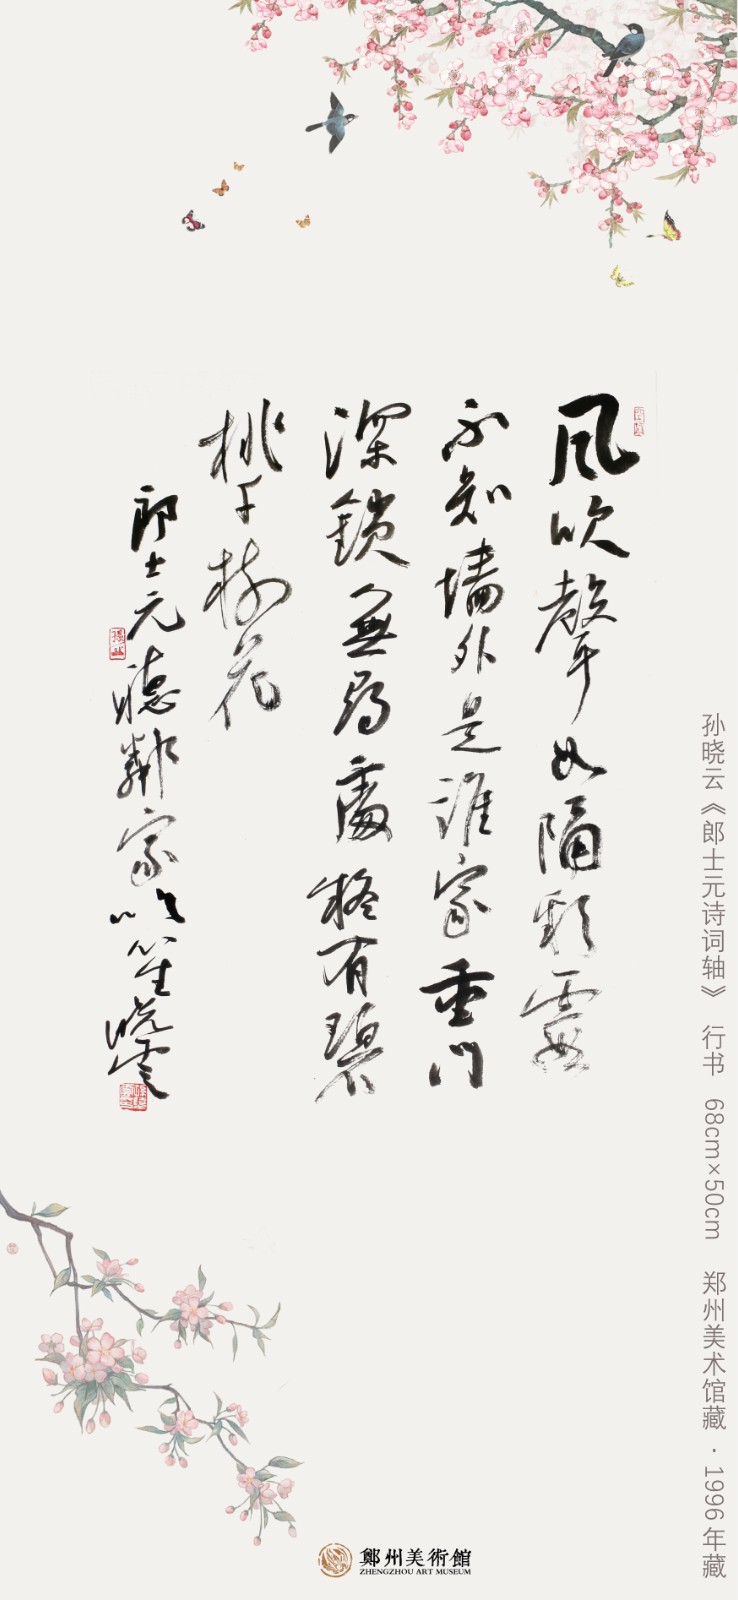 風吹聲如隔彩霞
不知墻外是誰家重門
深鎖無尋處疑有碧
桃千樹花
郎士元聽鄰家吹笙曉雲
孙晓云《郎士元诗词轴》 行书 68cm×50cm 郑州美术馆藏·1996年藏
鄭州美術館
ZHENGZHOU ART MUSEUM